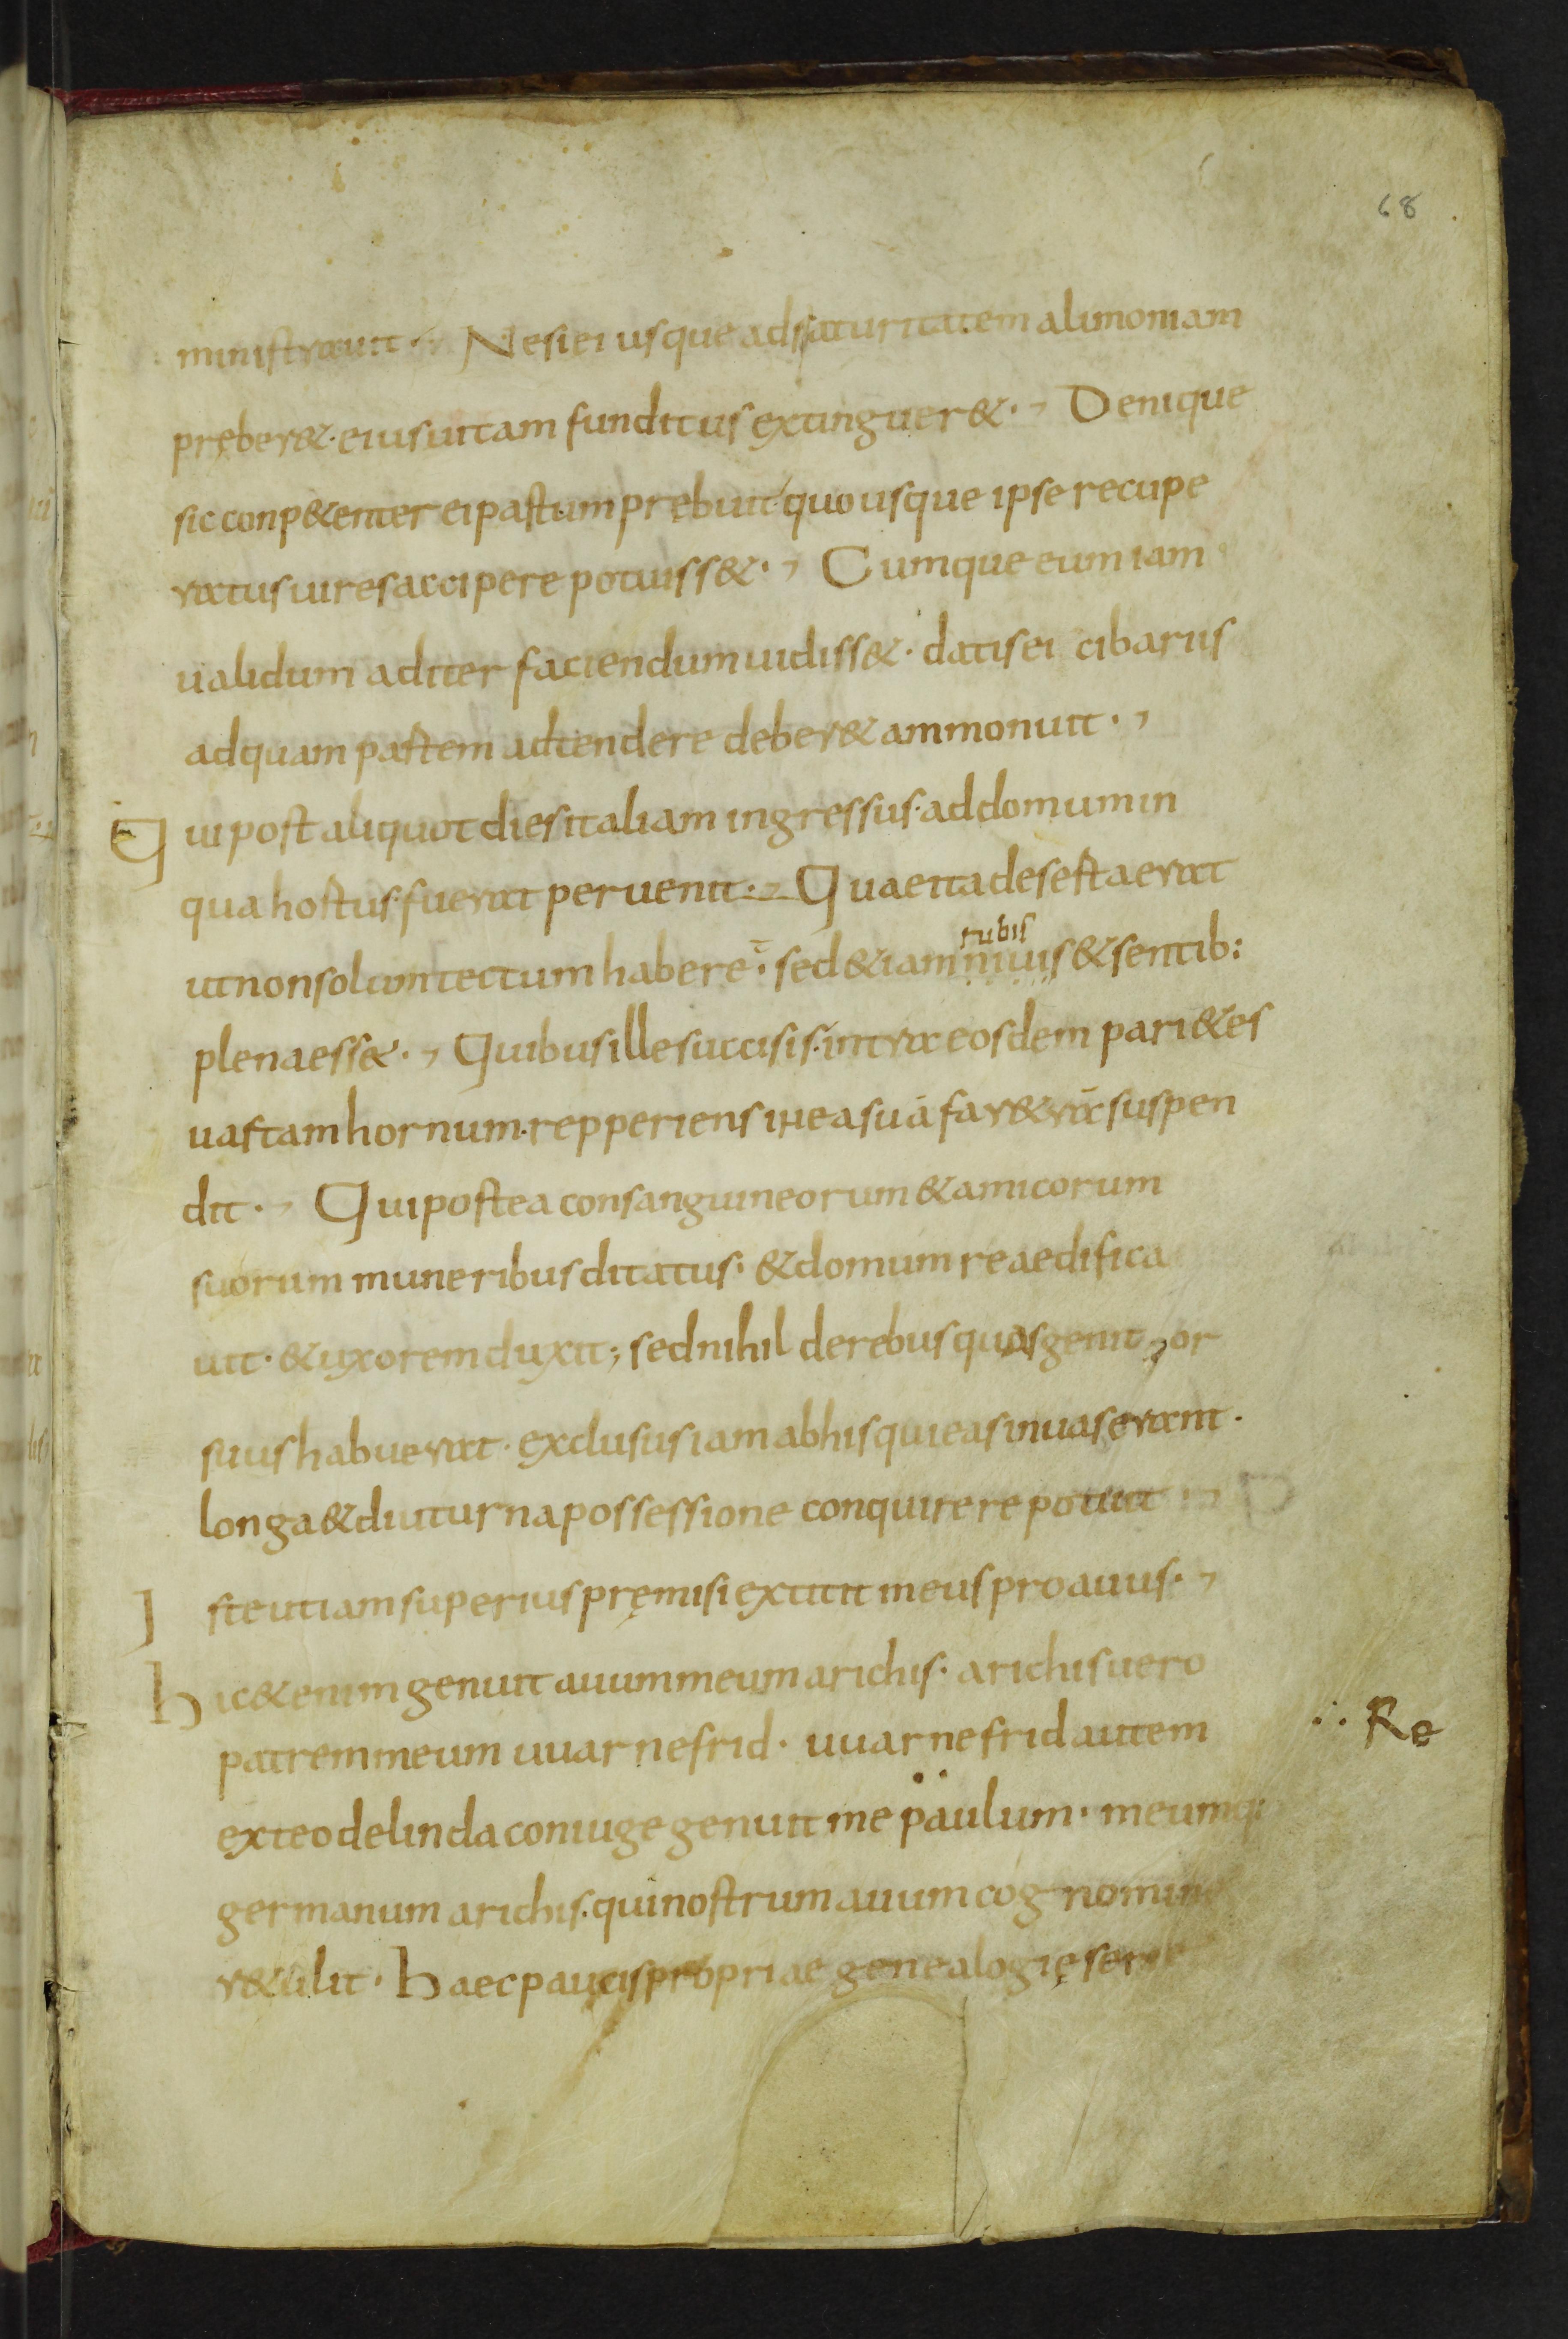 68
ministrauit · Ne si ei usque ad saturitatem alimoniam
pręber& · eius uitam funditus extinguer& · Denique
sic conp&enter ei pastum prębuit quo usque ipse recupe
ratus uires accipere potuiss& · Cumque eum iam
ualidum ad iter faciendum uidiss& · datis ei cibariis
ad quam partem adtendere deber& ammonuit ·
Qui post aliquot dies italiam ingressus · ad domum in
qua hortus fuerat peruenit · Quae ita deserta erat
rubis
ut non solum tectum habere ̄ · sed &iam niuis & sentib:
plena ess& · Quibus ille succisis · intra eosdem pari&es
uastam hornum · repperiens in ea suā far&rā suspen
dit · Qui postea consanguineorum & amicorum
suorum muneribus ditatus · & domum reaedifica
uit · & uxorem duxit; sed nihil de rebus quas genit or
suus habuerat · exclusus iam ab his qui eas inuaserant ·
longa & diuturna possessione conquirere potuit
Iste ut iam superius pręmisi extitit meus proauus ·
Hic &enim genuit auum meum arichis · arichis uero
patrem meum uuarnefrid · uuarnefrid autem
∴ Re
ex teodelinda coniuge genuit me paulum · meumq:
germanum arichis · qui nostrum auum cognomine
r&ulit · Haec paucis propriae genealogię serie